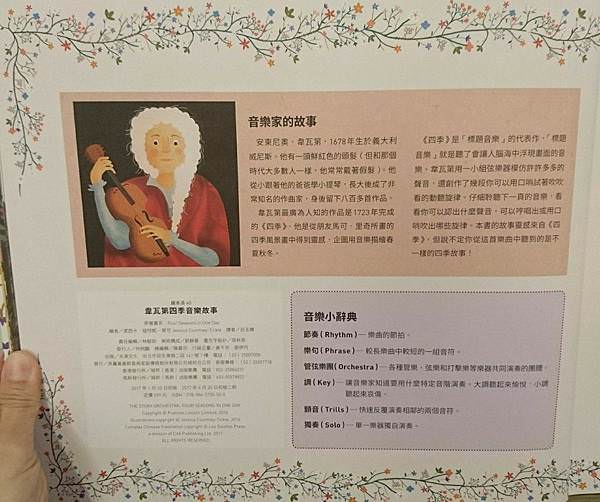 音樂家的故事
安東尼奧．韋瓦第，1678年生於義大利
威尼斯。他有一頭鮮紅色的頭髮（但和那個
時代大多數人一樣，他常常戴著假髮）。他
從小跟著他的爸爸學小提琴，長大後成了非
常知名的作曲家，身後留下八百多首作品。
韋瓦第最廣為人知的作品是1723年完成
的《四季》。他是從朋友馬可．里奇所畫的
四季風景畫中得到靈感，企圖用音樂描繪春
夏秋冬。
《四季》是「標題音樂」的代表作，「標題
音樂」就是聽了會讓人腦海中浮現畫面的音
樂。韋瓦第用一小組弦樂器模仿許許多多的
聲音，還創作了幾段你可以用口哨試著吹吹
看的動聽旋律。仔細聆聽下一頁的音樂，看
看你可以認出什麼聲音，可以哼唱出或用口
哨吹出哪些旋律。本書的故事靈感來自《四
季》，但說不定你從這首樂曲中聽到的是不
一樣的四季故事！
韋瓦第四季音樂故事
THE STORY ORCHESTRA: FOUR SEASONS IN ONE DAY
ALL RIGHTS RESERVED.
音樂小辭典
節奏（Rhythm）— 樂曲的節拍。
樂句（Phrase）— 較長樂曲中較短的一組音符。
管弦樂團（Orchestra）— 各種管樂、弦樂和打擊樂等樂器共同演奏的團體。
調（Key）— 讓音樂家知道要用什麼特定音階演奏。大調聽起來愉悅，小調
聽起來哀傷。
顫音（Trills）— 快速反覆演奏相鄰的兩個音符。
獨奏（Solo）— 單一樂器獨自演奏。